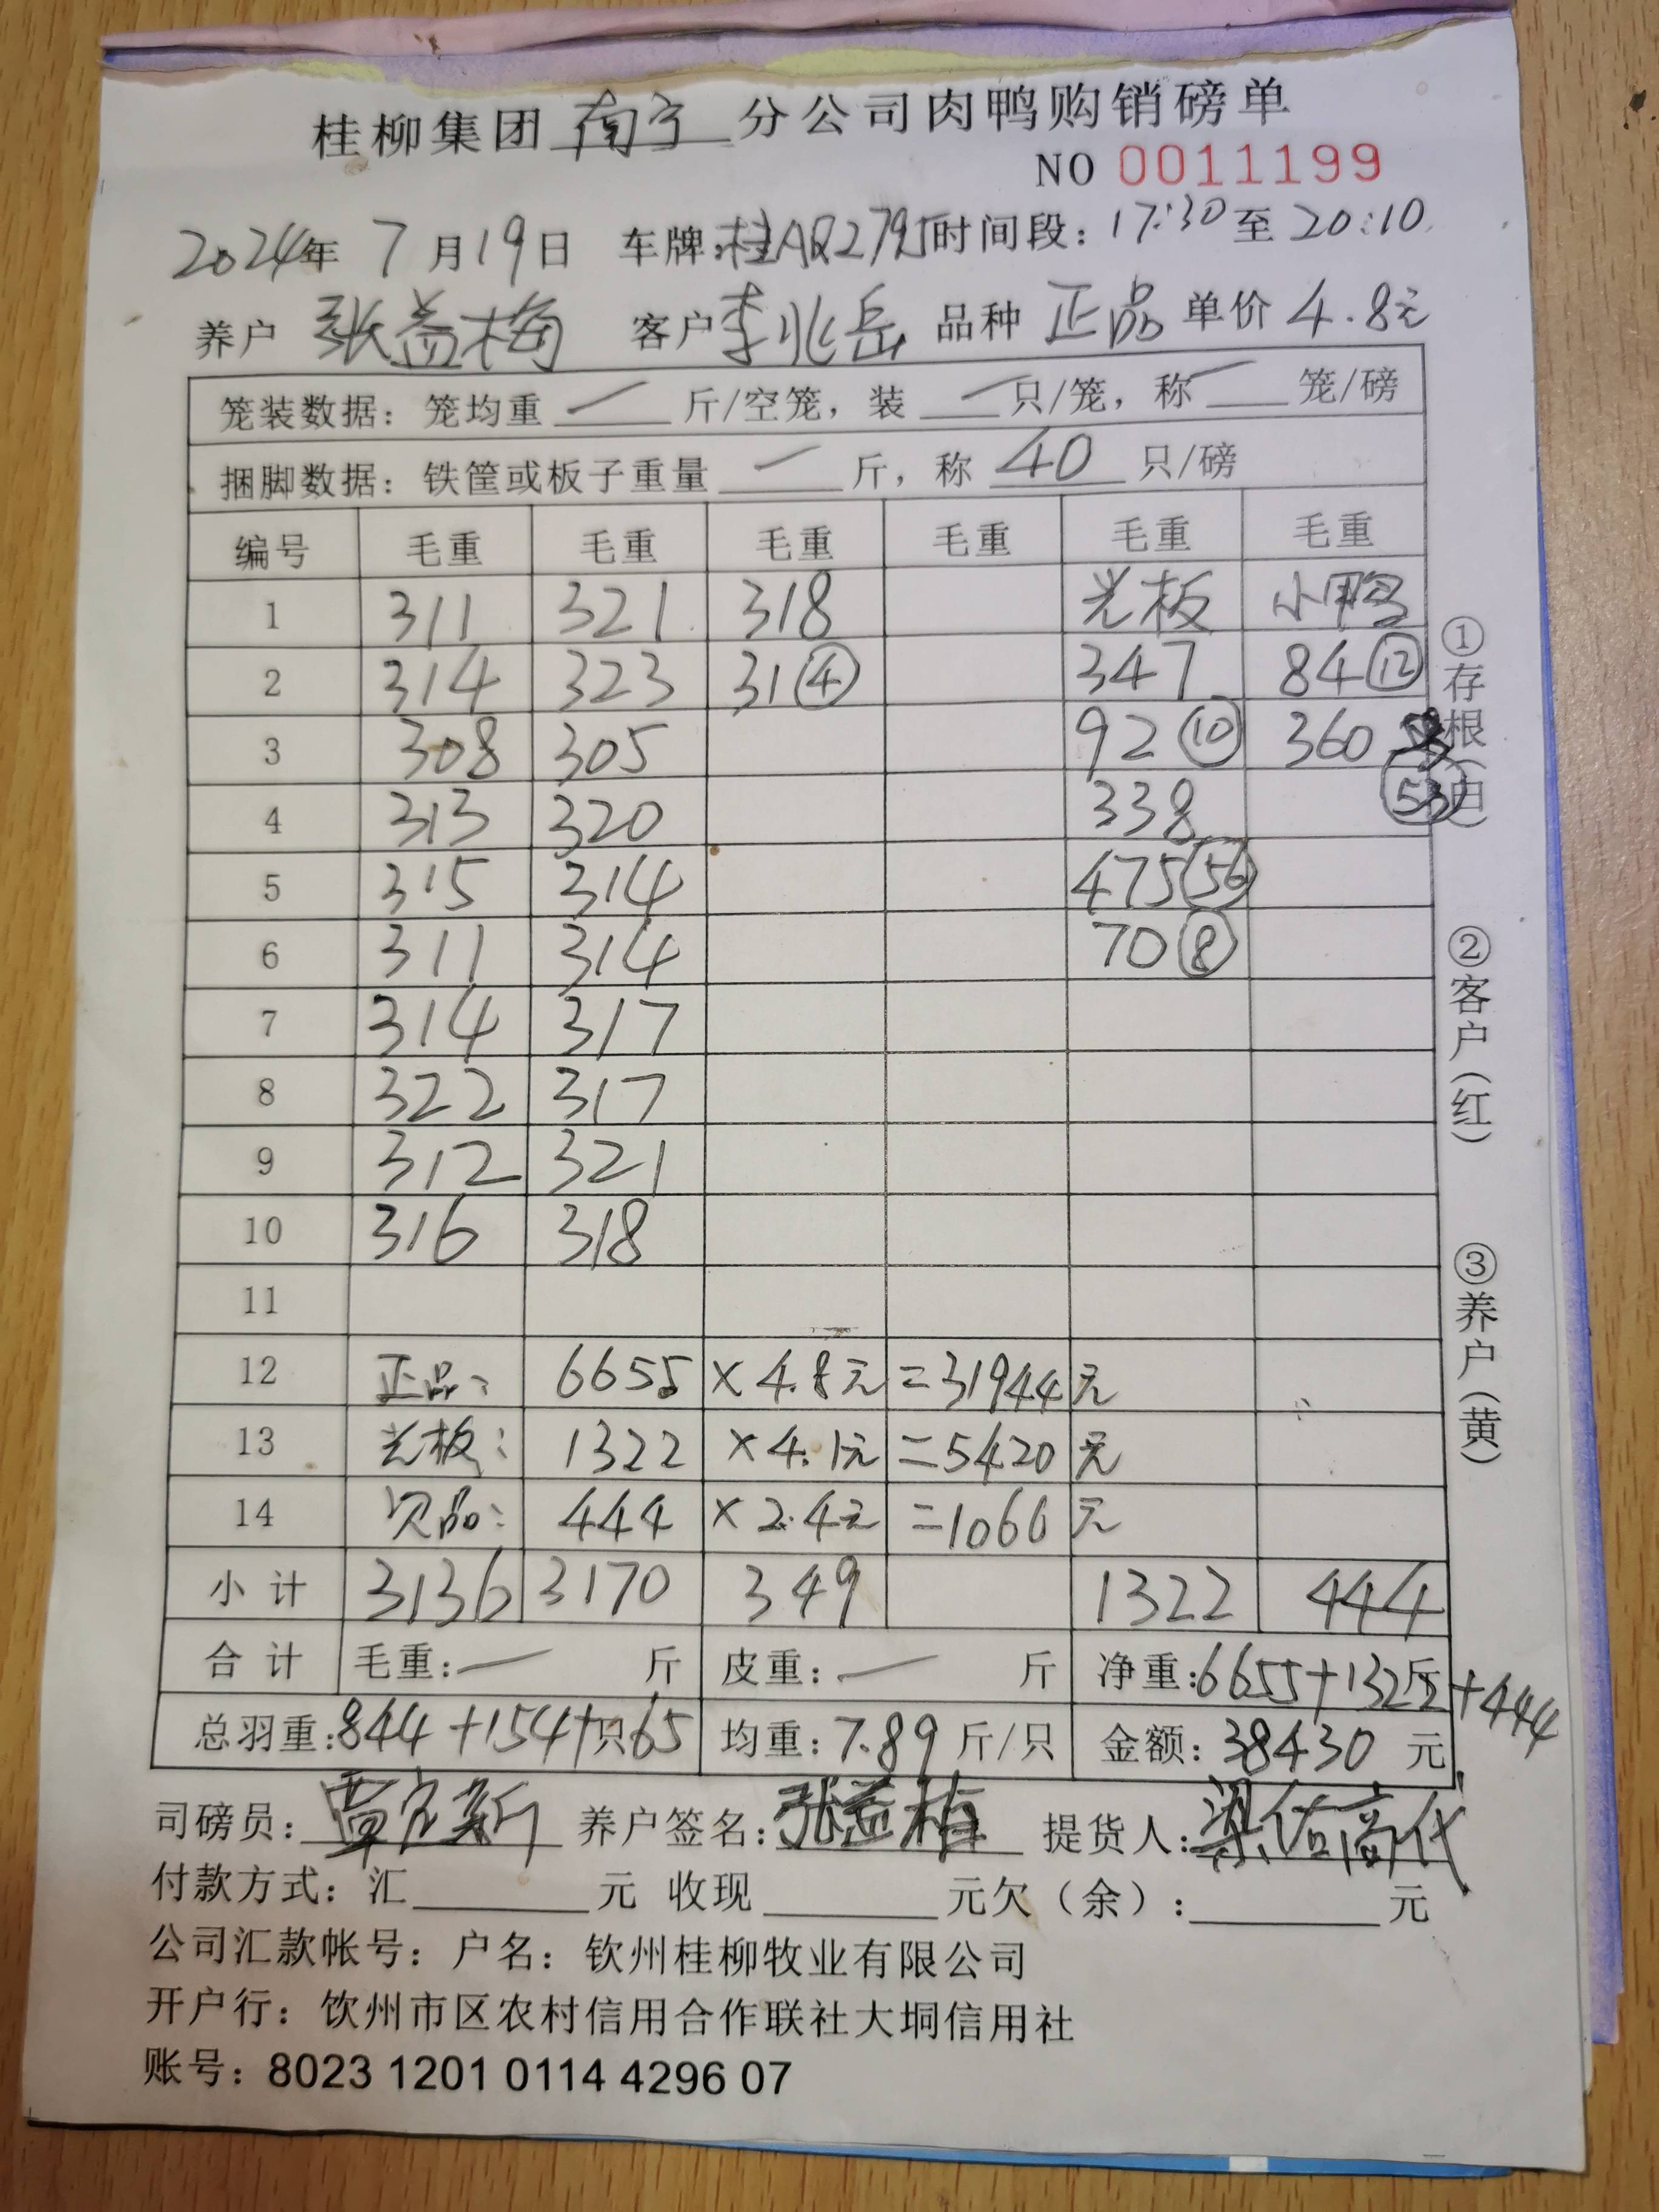 桂柳集团 南宁 分公司肉鸭购销磅单
NO 0011199
2024年 7月19日 车牌:桂AQ279J 时间段: 17:30 至 20:10
养户 张益梅 客户 李兆岳 品种 正品 单价 4.8元
笼装数据: 笼均重 — 斤/空笼, 装 — 只/笼, 称 — 笼/磅
捆脚数据: 铁筐或板子重量 — 斤, 称 40 只/磅
编号 毛重 毛重 毛重 毛重 毛重 毛重
1 311 321 318 光板 小鸭
2 314 323 31④ 347 84⑫
3 308 305 92⑩ 360
4 313 320 338 53
5 315 314 475 56
6 311 314 70⑧
7 314 317
8 322 317
9 312 321
10 316 318
11
12 正品: 6655 ×4.8元 =31944元
13 光板: 1322 ×4.1元 =5420元
14 次品: 444 ×2.4元 =1066元
小计 3136 3170 349 1322 444
合计 毛重:— 斤 皮重:— 斤 净重:6655+1322斤+444
总羽重:844+154+只65 均重:7.89斤/只 金额:38430元
司磅员: 养户签名:张益梅 提货人:
付款方式: 汇 元 收现 元欠(余): 元
公司汇款帐号: 户名: 钦州桂柳牧业有限公司
开户行: 饮州市区农村信用合作联社大垌信用社
账号: 8023 1201 0114 4296 07
①存根(白)
②客户(红)
③养户(黄)